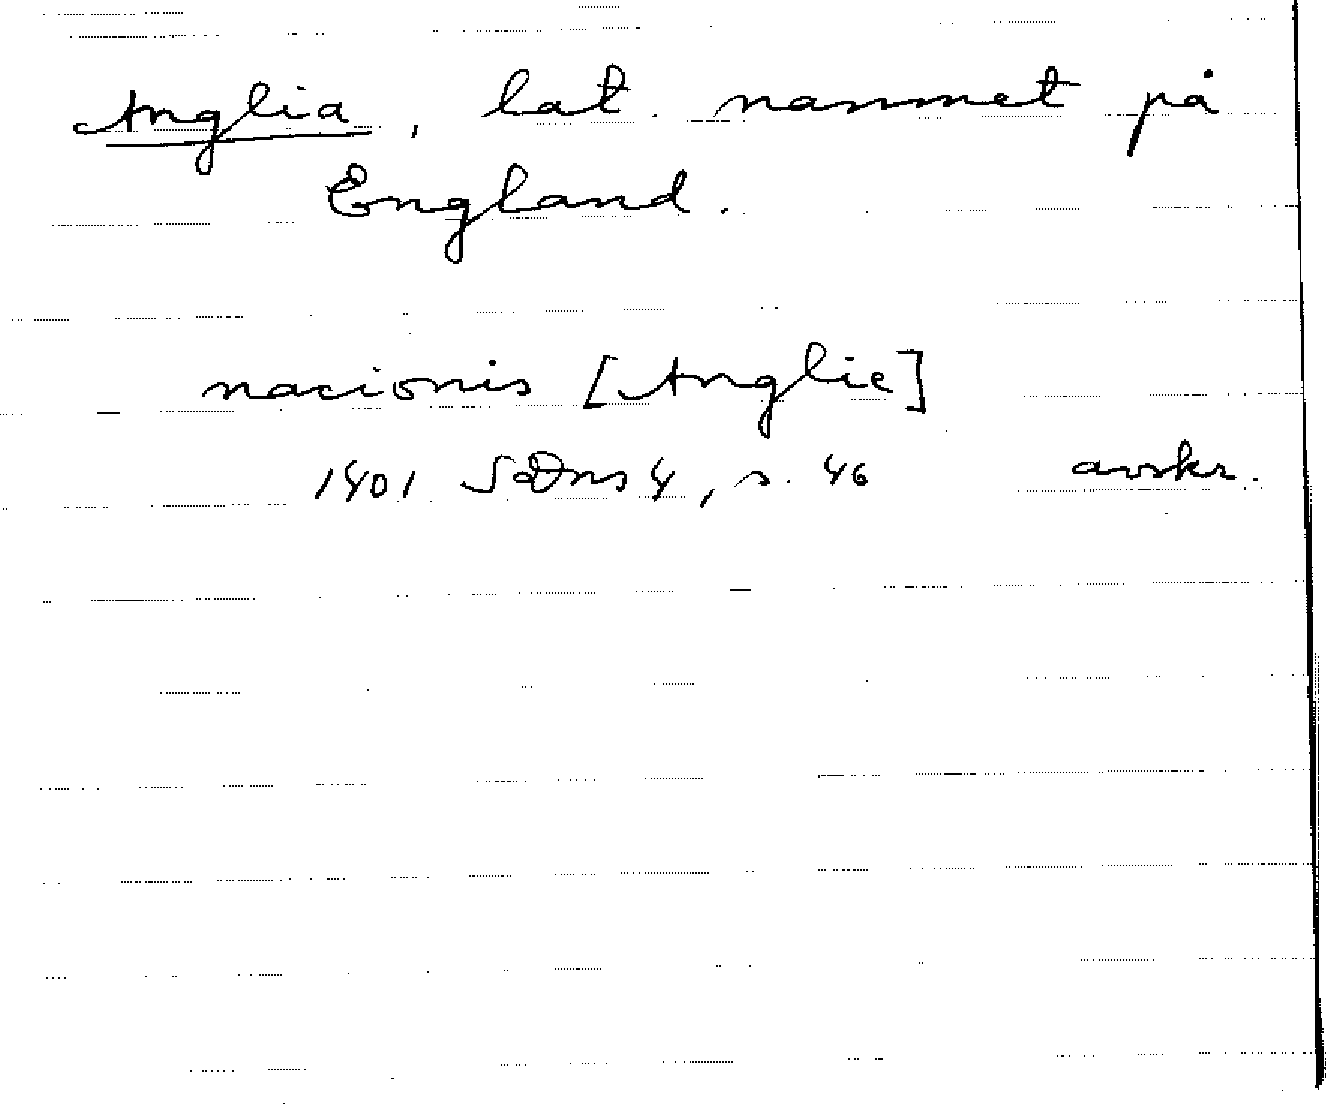 Anglia, lat. namnet på
England.
nacionis [Anglie]
1401 SäDns 4, s. 46 avskr.